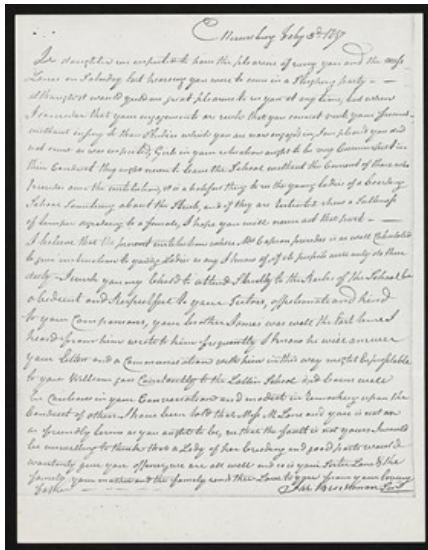 Mercersburg Feby 3d 1837
Dr daughter we expected to have the pleasure of seeing you and the miss
Lanes on Saturday last hearing you were to come in a Sleighing party —
although it would give me great pleasure to see you at any time, but when
I consider that your engagements are such that you cannot visit your friends
without injury to the Studies which you are now engaged in, I am pleased you did
not come as was expected, Girls in your situation ought to be very Circumspect in
their Conduct they ought never to leave the School without the Consent of those who
preside over the institution, it is a
School about the Streets, and if they are show a
of temper to a female, I hope you will never act that part —
I believe that the present institution where Mr Capron presides is as well Calculated
to give instruction to young Ladies as any I know of, if the pupils will only do their
duty I wish you my Child to attend Strictly to the Rules of the School be
obedient and Respectful to your Tutors, affectionate and kind
to your Companions, your brother James was well the last time I
heard from him write to him frequently I know he will answer
your Letters and a Communication with him in this way might be profitable
to you William goes to the Latin School and learns well
be Cautious in your Conversation and modest in Remarks upon the
Conduct of others I have been told that Miss M Lane and you is not on
as friendly terms as you ought to be, that the fault is not yours I would
be unwilling to think that a Lady of her breeding and good parts would
wantonly give you offence, we are all well and so is your Sister Lane & the
family, your mother and the family send their Love to you from your loving
father